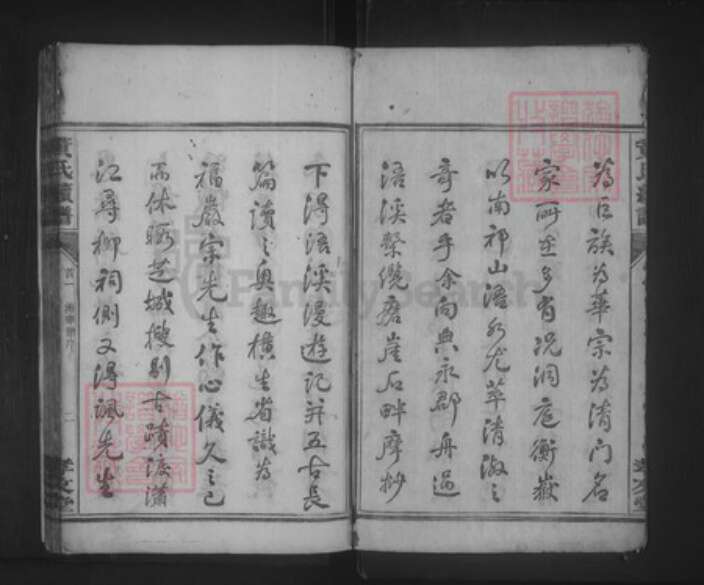 為巨族為華宗為清門名
家所在多有況洞庭衡嶽
以南祁山浯水尤萃清淑之
奇者乎余向典永郡舟過
浯溪繫纜磨崖石畔摩抄
下得浯溪漫遊記并五古長
篇讀之奥趣橫生省識為
福巖宗先生作心儀久之已
而休暇芝城搜剔古蹟渡瀟
江尋柳祠側又得諷先生
黃氏續譜
首一
二
孝友堂
FamilySearch